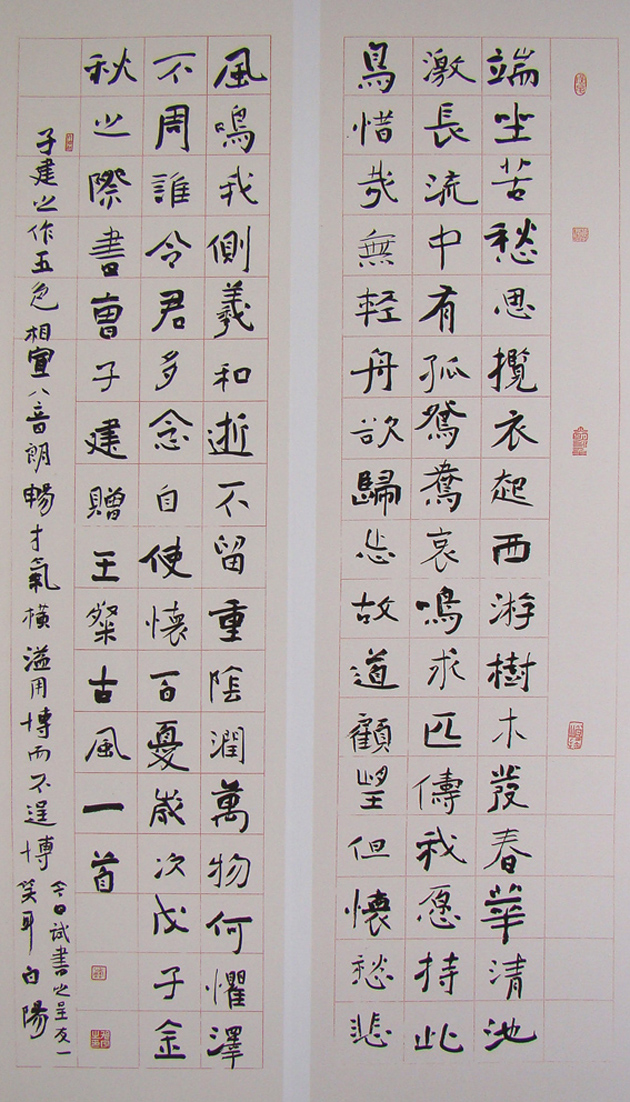 端坐苦愁思攬衣起西游樹木發春華清池
激長流中有孤鴛鴦哀鳴求匹儔我愿持此
鳥惜哉無軽舟欲歸忘故道顧望但懷愁悲
風鳴我側羲和逝不留重陰潤萬物何懼澤
不周誰令君多念自使懷百憂歲次戊子金
秋之際書曹子建贈王粲古風一首
子建之作五色相宣八音朗暢才氣橫溢用博而不逞博
今日試書之呈友一
笑耳白陽